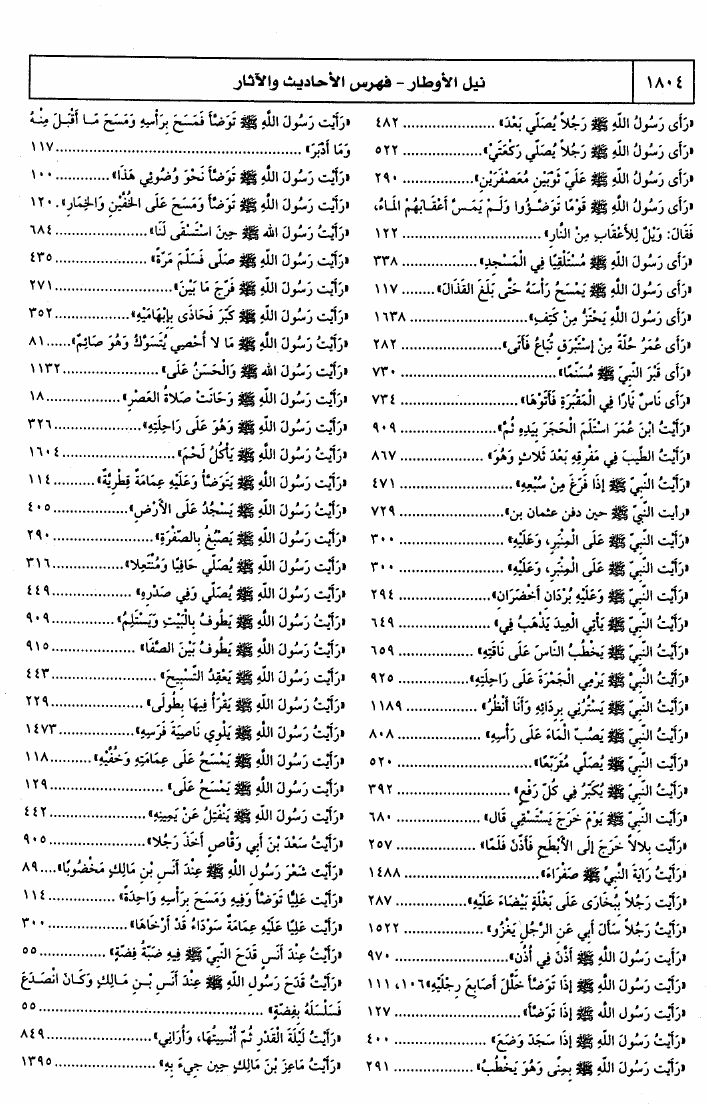 ١٨٠٤
نيل الأوطار - فهرس الأحاديث والآثار
«رَأَى رَسُولُ اللَّهِ ﷺ رَجُلاً يُصَلِّي بَعْدَ» ........ ٤٨٢
«رَأَى رَسُولُ اللَّهِ ﷺ رَجُلاً يُصَلِّي رَكْعَتَيْ» ........ ٥٢٢
«رَأَى رَسُولُ اللَّهِ ﷺ عَلَيَّ ثَوْبَيْنِ مُعَصْفَرَيْنِ» ........ ٢٩٠
«رَأَى رَسُولُ اللَّهِ ﷺ قَوْمًا تَوَضَّؤُوا وَلَمْ يَمَسَّ أَعْقَابَهُمُ المَاءُ،
فَقَالَ: وَيْلٌ لِلأَعْقَابِ مِنْ النَّارِ» ........ ١٢٢
«رَأَى رَسُولَ اللَّهِ ﷺ مُسْتَلْقِيًا فِي الْمَسْجِدِ» ........ ٣٣٨
«رَأَى رَسُولَ اللَّهِ ﷺ يَمْسَحُ رَأْسَهُ حَتَّى بَلَغَ القَذَالَ» ........ ١١٧
«رَأَى رَسُولَ اللَّهِ يَحْتَزُّ مِنْ كَتِفِ» ........ ١٦٣٨
«رَأَى عُمَرُ حُلَّةً مِنْ إِسْتَبْرَقٍ تُبَاعُ فَأَتَى» ........ ٢٨٢
«رَأَى قَبْرَ النَّبِيِّ ﷺ مُسَنَّمًا» ........ ٧٣٠
«رَأَى نَاسٌ نَارًا فِي الْمَقْبَرَةِ فَأَتَوْهَا» ........ ٧٣٤
«رَأَيْتُ ابْنَ عُمَرَ اسْتَلَمَ الْحَجَرَ بِيَدِهِ ثُمَّ» ........ ٩٠٩
«رَأَيْتُ الطِّيبَ فِي مَفْرِقِهِ بَعْدَ ثَلاثٍ وَهُوَ» ........ ٨٦٧
«رَأَيْتُ النَّبِيَّ ﷺ إِذَا فَرَغَ مِنْ سُبْعِهِ» ........ ٤٧١
«رأيت النبي ﷺ حين دفن عثمان بن» ........ ٧٢٩
«رَأَيْتُ النَّبِيَّ ﷺ عَلَى الْمِنْبَرِ، وَعَلَيْهِ» ........ ٣٠٠
«رَأَيْتُ النَّبِيَّ ﷺ عَلَى الْمِنْبَرِ، وَعَلَيْهِ» ........ ٣٠٠
«رَأَيْتُ النَّبِيَّ ﷺ وَعَلَيْهِ بُرْدَانِ أَخْضَرَانِ» ........ ٢٩٤
«رَأَيْتُ النَّبِيَّ ﷺ يَأْتِي الْعِيدَ يَذْهَبُ فِي» ........ ٦٤٩
«رَأَيْتُ النَّبِيَّ ﷺ يَخْطُبُ النَّاسَ عَلَى نَاقَتِهِ» ........ ٦٥٩
«رَأَيْتُ النَّبِيَّ ﷺ يَرْمِي الْجَمْرَةَ عَلَى رَاحِلَتِهِ» ........ ٩٢٥
«رَأَيْتُ النَّبِيَّ ﷺ يَسْتُرُنِي بِرِدَائِهِ وَأَنَا أَنْظُرُ» ........ ١١٨٩
«رَأَيْتُ النَّبِيَّ ﷺ يَصُبُّ الْمَاءَ عَلَى رَأْسِهِ» ........ ٨٠٨
«رَأَيْتُ النَّبِيَّ ﷺ يُصَلِّي مُتَرَبِّعًا» ........ ٥٢٠
«رَأَيْتُ النَّبِيَّ ﷺ يُكَبِّرُ فِي كُلِّ رَفْعٍ» ........ ٣٩٢
«رَأَيْتُ النَّبِيَّ ﷺ يَوْمَ خَرَجَ يَسْتَسْقِي قَال» ........ ٦٨٠
«رَأَيْتُ بِلالاً خَرَجَ إِلَى الأَبْطَحِ فَأَذَّنَ فَلَمَّا» ........ ٢٥٧
«رَأَيْتُ رَايَةَ النَّبِيِّ ﷺ صَفْرَاءَ» ........ ١٤٨٨
«رَأَيْتُ رَجُلاً بِبُخَارَى عَلَى بَغْلَةٍ بَيْضَاءَ عَلَيْهِ» ........ ٢٨٧
«رَأَيْتُ رَجُلاً سَأَلَ أَبِي عَنِ الرَّجُلِ يَغْزُو» ........ ١٥٢٢
«رَأَيت رَسُولَ اللَّهِ ﷺ أَذَّنَ فِي أُذُنِ» ........ ٩٧٠
«رَأَيْتُ رَسُولَ اللَّهِ ﷺ إِذَا تَوَضَّأَ خَلَّلَ أَصَابِعَ رِجْلَيْهِ» ١٠٦، ١١١
«رَأَيْتُ رَسُولَ اللهِ ﷺ إِذَا تَوَضَّأَ» ........ ١٢٧
«رَأَيْتُ رَسُولَ اللَّهِ ﷺ إِذَا سَجَدَ وَضَعَ» ........ ٤٠٠
«رَأَيْت رَسُولَ اللَّهِ ﷺ بِمِنًى وَهُوَ يَخْطُبُ» ........ ٢٩١
«رَأَيْت رَسُولَ اللَّهِ ﷺ تَوَضَّأَ فَمَسَحَ بِرَأْسِهِ وَمَسَحَ مَا أَقْبَلَ مِنْهُ
وَمَا أَدْبَرَ» ........ ١١٧
«رَأَيْت رَسُولَ اللَّهِ ﷺ تَوَضَّأَ نَحْوَ وُضُوئِي هَذَا» ........ ١٠٠
«رَأَيْت رَسُولَ اللَّهِ ﷺ تَوَضَّأَ وَمَسَحَ عَلَى الْخُفَّيْنِ وَالخِمَارِ» ١٢٠
«رَأَيْتُ رَسُولَ الله ﷺ حِينَ اسْتَسْقَى لَنَا» ........ ٦٨٤
«رَأَيْتُ رَسُولَ اللَّهِ ﷺ صَلَّى فَسَلَّمَ مَرَّةً» ........ ٤٣٥
«رَأَيْتُ رَسُولَ اللَّهِ ﷺ فَرَّجَ مَا بَيْنَ» ........ ٢٧١
«رَأَيْتُ رَسُولَ اللَّهِ ﷺ كَبَّرَ فَحَاذَى بِإِبْهَامَيْهِ» ........ ٣٥٢
«رَأَيْتُ رَسُولَ اللَّهِ ﷺ مَا لا أُحْصِي يَتَسَوَّكُ وَهُوَ صَائِمٌ» ........ ٨١
«رَأَيْتُ رَسُولَ الله ﷺ وَالْحَسَنُ عَلَى» ........ ١١٣٢
«رَأَيْتُ رَسُولَ اللَّهِ ﷺ وَحَانَتْ صَلاةُ العَصْرِ» ........ ١٨
«رَأَيْتُ رَسُولَ اللَّهِ ﷺ وَهُوَ عَلَى رَاحِلَتِهِ» ........ ٣٢٦
«رَأَيْتُ رَسُولَ اللَّهِ ﷺ يَأْكُلُ لَحْمَ» ........ ١٦٠٤
«رَأَيْتُ رَسُولَ اللَّهِ ﷺ يَتَوَضَّأُ وَعَلَيْهِ عِمَامَةٌ قِطْرِيَّةٌ» ........ ١١٤
«رَأَيْتُ رَسُولَ اللَّهِ ﷺ يَسْجُدُ عَلَى الأَرْضِ» ........ ٤٠٥
«رَأَيْتُ رَسُولَ اللَّهِ ﷺ يَصْبُغُ بِالصُّفْرَةِ» ........ ٢٩٠
«رَأَيْتُ رَسُولَ اللَّهِ ﷺ يُصَلِّي حَافِيًا وَمُنْتَعِلا» ........ ٣١٦
«رَأَيْتُ رَسُولَ اللَّهِ ﷺ يُصَلِّي وَفِي صَدْرِهِ» ........ ٤٤٩
«رَأَيْتُ رَسُولَ اللَّهِ ﷺ يَطُوفُ بِالْبَيْتِ وَيَسْتَلِمُ» ........ ٩٠٩
«رَأَيْتُ رَسُولَ اللَّهِ ﷺ يَطُوفُ بَيْنَ الصَّفَا» ........ ٩١٥
«رَأَيْتُ رَسُولَ اللَّهِ ﷺ يَعْقِدُ التَّسْبِيحَ» ........ ٤٤٣
«رَأَيْتُ رَسُولَ اللَّهِ ﷺ يَقْرَأُ فِيهَا بِطُولَى» ........ ٢٢٩
«رَأَيْتُ رَسُولَ اللَّهِ ﷺ يَلْوِي نَاصِيَةَ فَرَسِهِ» ........ ١٤٧٣
«رَأَيْت رَسُولَ اللَّهِ ﷺ يَمْسَحُ عَلَى عِمَامَتِهِ وَخُفَّيْهِ» ........ ١١٨
«رَأَيْتُ رَسُولَ اللَّهِ ﷺ يَمْسَحُ عَلَى» ........ ١٢٩
«رَأَيْتُ رَسُولَ اللَّهِ ﷺ يَنْفَتِلُ عَنْ يَمِينِهِ» ........ ٤٤٢
«رَأَيْتُ سَعْدَ بْنَ أَبِي وَقَّاصٍ أَخَذَ رَجُلا» ........ ٩٠٥
«رَأَيْت شَعْرَ رَسُولِ اللَّهِ ﷺ عِنْدَ أَنَسِ بْنِ مَالِكٍ مَخْضُوبًا» ........ ٨٩
«رَأَيْت عَلِيًّا تَوَضَّأَ وَفِيهِ وَمَسَحَ بِرَأْسِهِ وَاحِدَةً» ........ ١١٤
«رَأَيْت عَلِيًا عَلَيْهِ عِمَامَةٌ سَوْدَاءُ قَدْ أَرْخَاهَا» ........ ٣٠٠
«رَأَيْتُ عِنْدَ أَنَسٍ قَدَحَ النَّبِيِّ ﷺ فِيهِ ضَبَّةُ فِضَّةٍ» ........ ٥٥
«رَأَيْتُ قَدَحَ رَسُولِ اللَّهِ ﷺ عِنْدَ أَنَسِ بْنِ مَالِكٍ وَكَانَ انْصَدَعَ
فَسَلْسَلَهُ بِفِضَّةٍ» ........ ٥٥
«رَأَيْتُ لَيْلَةَ الْقَدْرِ ثُمَّ أُنْسِيتُهَا، وَأُرَانِي» ........ ٨٤٩
«رَأَيْتُ مَاعِزَ بْنَ مَالِكٍ حِين جِيءَ بِهِ» ........ ١٣٩٥